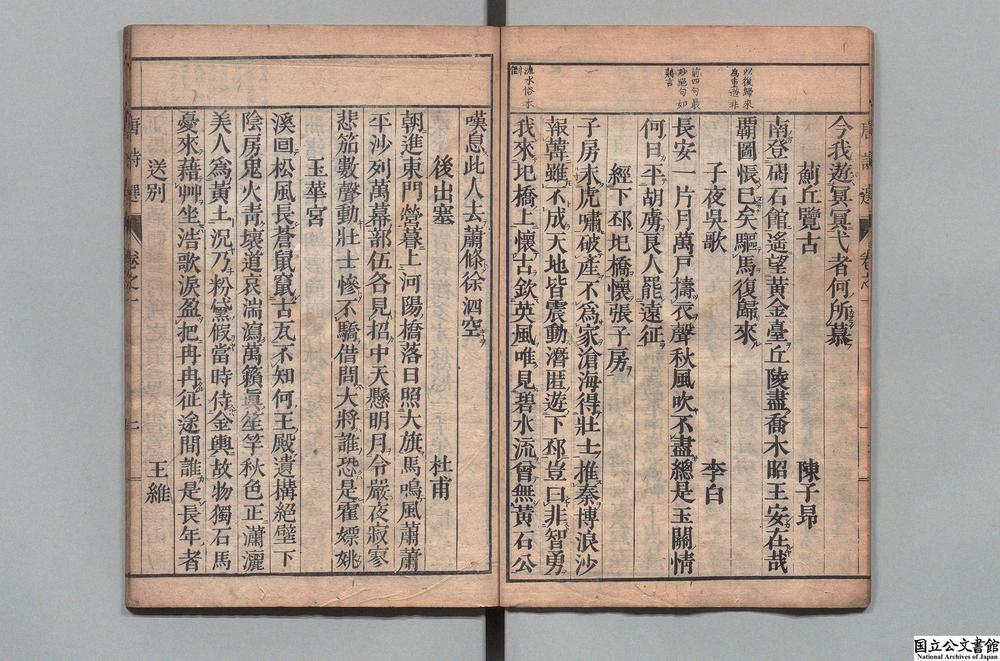 今我遊冥冥弋者何所慕
薊丘覽古 陳子昂
南登碣石館遙望黃金臺丘陵盡喬木昭王安在哉
霸圖悵已矣驅馬復歸來
子夜吳歌 李白
長安一片月萬戶擣衣聲秋風吹不盡總是玉關情
何日平胡虜良人罷遠征
經下邳圯橋懷張子房
子房未虎嘯破產不爲家滄海得壯士推秦博浪沙
報韓雖不成天地皆震動潛匿遊下邳豈曰非智勇
我來圯橋上懷古欽英風唯見碧水流曾無黃石公
以後歸來
前四句最
妙絕句如
嘆息此人去蕭條徐泗空
後出塞 杜甫
朝進東門營暮上河陽橋落日照大旗馬鳴風蕭蕭
平沙列萬幕部伍各見招中天懸明月令嚴夜寂寥
悲笳數聲動壯士慘不驕借問大將誰恐是霍嫖姚
玉華宮
溪回松風長蒼鼠竄古瓦不知何王殿遺構絕壁下
陰房鬼火靑壞道哀湍瀉萬籟眞笙竽秋色正瀟灑
美人爲黃土況乃粉黛假當時侍金輿故物獨石馬
憂來藉艸坐浩歌淚盈把冉冉征途間誰是長年者
送別 王維
唐詩選
卷之一
国立公文書館
National Archives of Japan